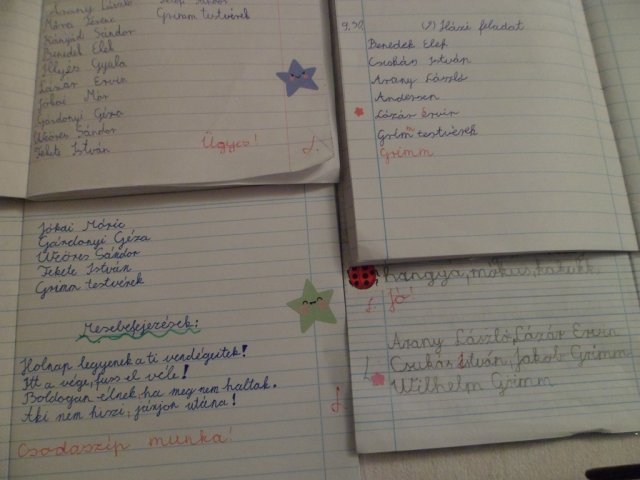 Arany László
Móra Ferenc
Kányádi Sándor
Benedek Elek
Illyés Gyula
Lázár Ervin
Jókai Mór
Gárdonyi Géza
Weöres Sándor
Fekete István
Sándor
Grimm testvérek
Ügyes!
9,30.
Házi feladat
Benedek Elek
Csukás István
Arany László
Andersen
Lázár Ervin
Grimm testvérek
Grimm
Jókai Móric
Gárdonyi Géza
Weöres Sándor
Fekete István
Grimm testvérek
Mesebefejezések:
Holnap legyenek a ti vendégeitek!
Itt a vége, fuss el véle!
Boldogan élnek, ha meg nem haltak.
Aki nem hiszi, járjon utána!
Csodaszép munka!
hangya, mókus, kakukk
Jó!
Arany László, Lázár Ervin
Csukás István, Jakob Grimm
Wilhelm Grimm